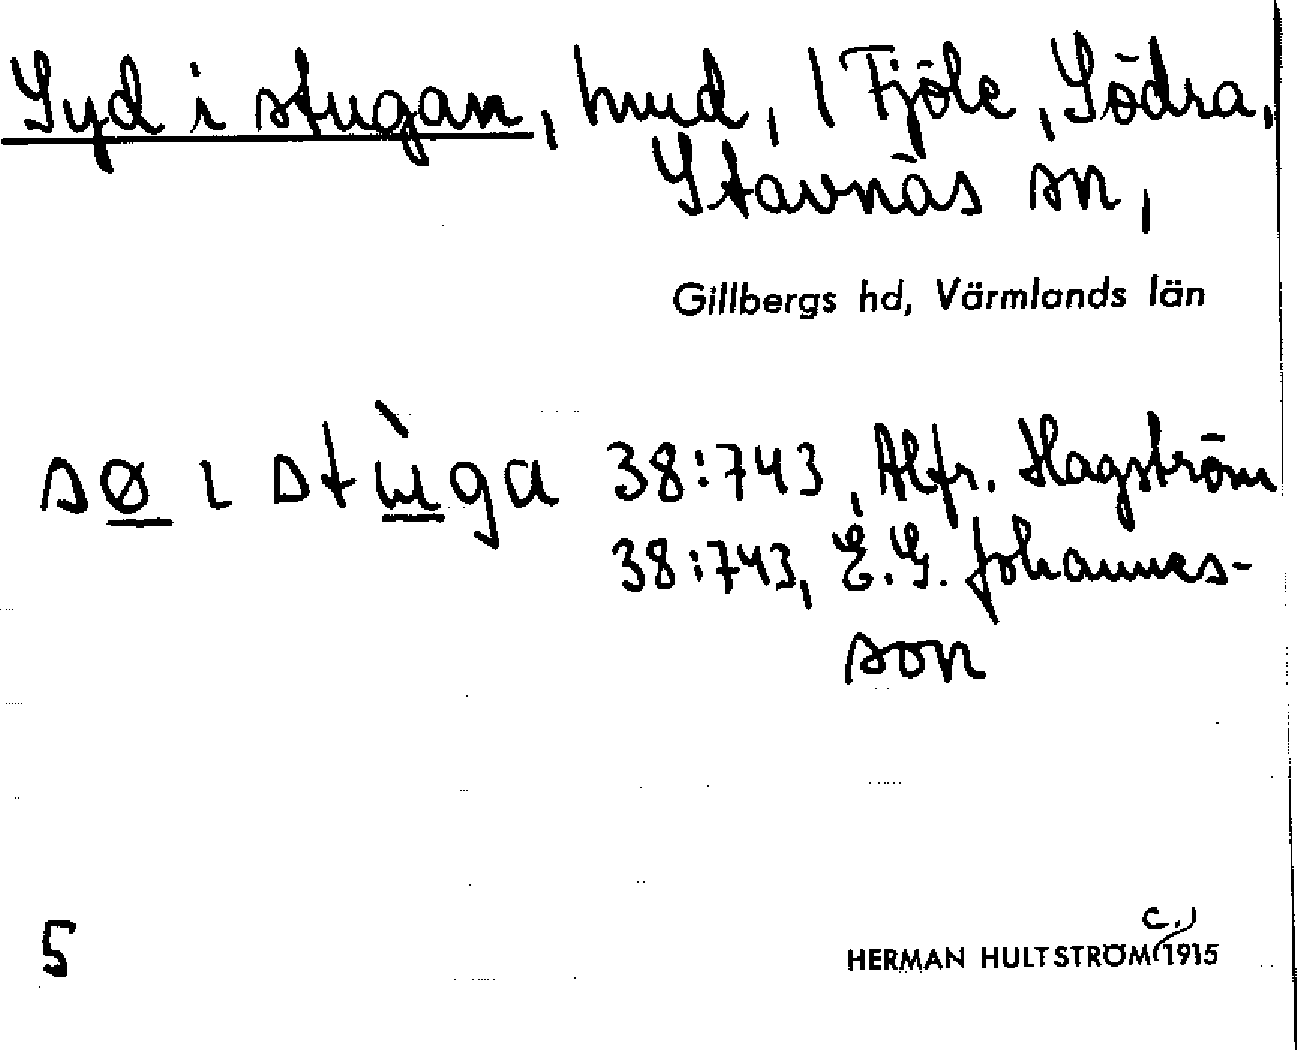 Syd i stugan, hmd, 1 Fjöle, Södra,
Stavnäs sn,
Gillbergs hd, Värmlands län
sø ɩ stɯ̀ga 38:743, Alfr. Hagström
38:743, E.G. Johannes-
son
5
C.
HERMAN HULTSTRÖM (1915